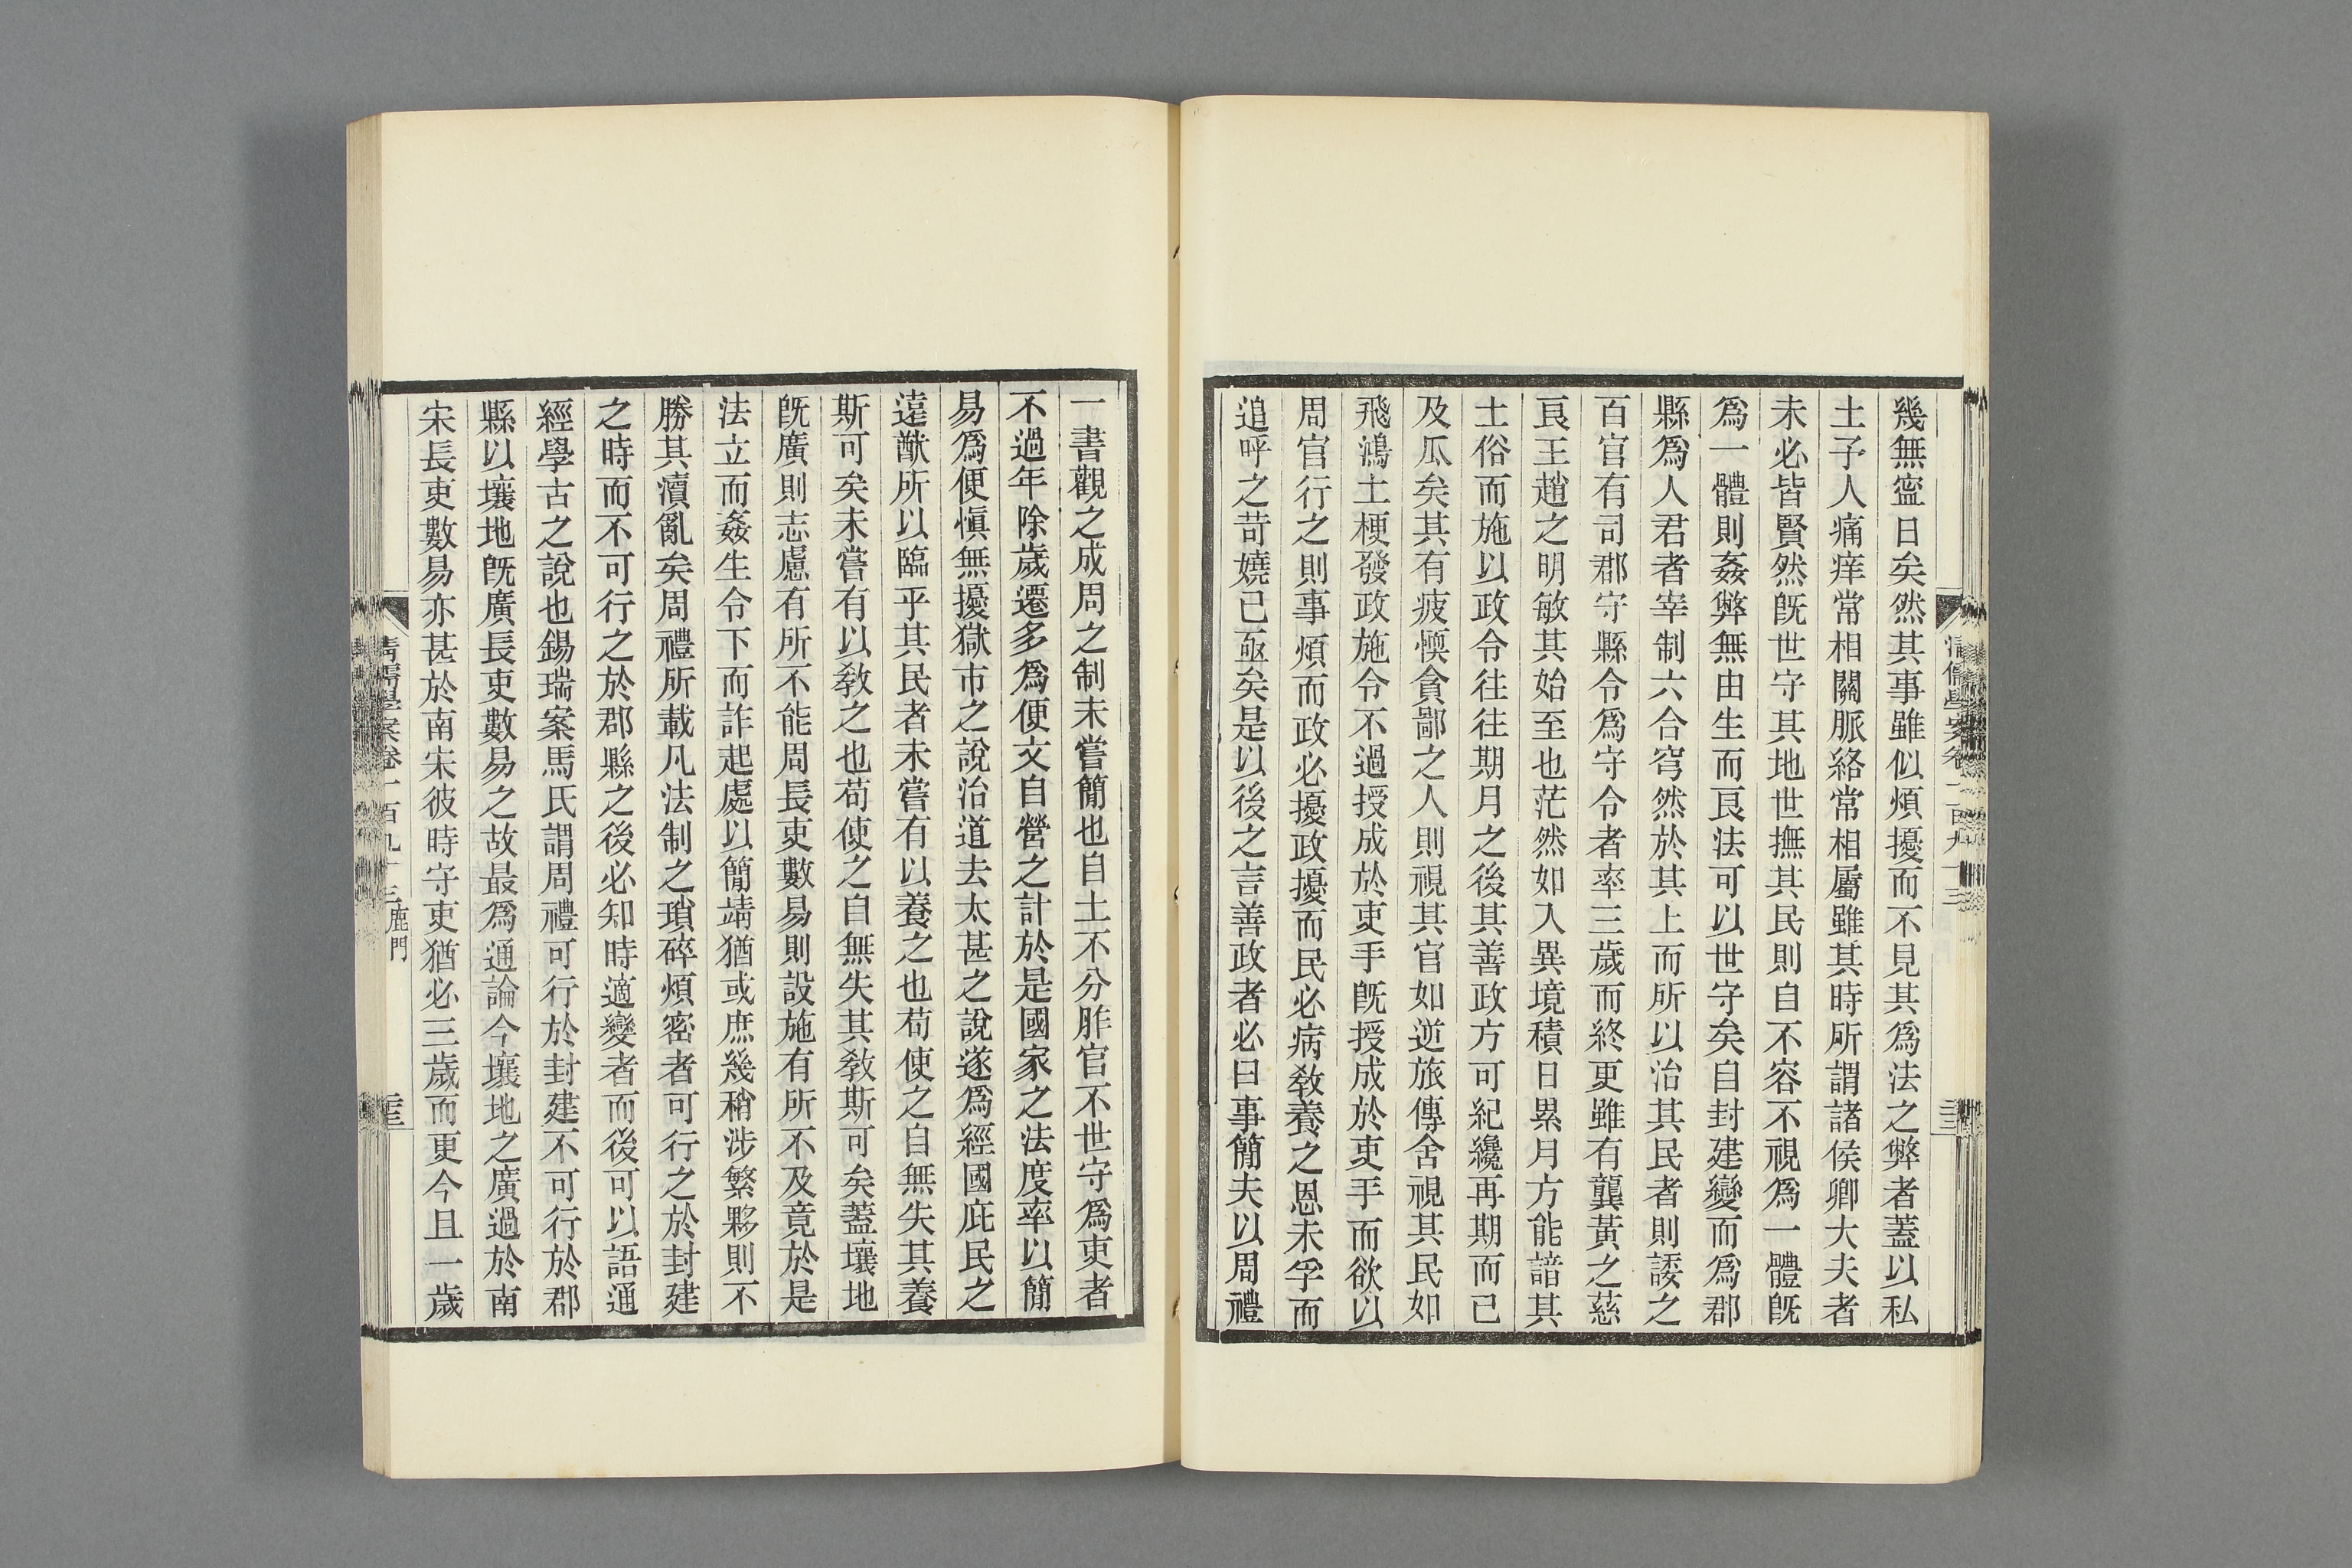 幾無寍日矣然其事雖似煩擾而不見其爲法之弊者蓋以私
土子人痛痒常相關脈絡常相屬雖其時所謂諸侯卿大夫者
未必皆賢然旣世守其地世撫其民則自不容不視爲一體旣
爲一體則姦弊無由生而良法可以世守矣自封建變而爲郡
縣爲人君者宰制六合穹然於其上而所以治其民者則諉之
百官有司郡守縣令爲守令者率三歲而終更雖有龔黃之慈
良王趙之明敏其始至也茫然如入異境積日累月方能諳其
土俗而施以政令往往期月之後其善政方可紀纔再期而已
及瓜矣其有疲愞貪鄙之人則視其官如逆旅傳舍視其民如
飛鴻土梗發政施令不過授成於吏手旣授成於吏手而欲以
周官行之則事煩而政必擾政擾而民必病敎養之恩未孚而
追呼之苛嬈已亟矣是以後之言善政者必曰事簡夫以周禮
一書觀之成周之制未嘗簡也自土不分胙官不世守爲吏者
不過年除歲遷多爲便文自營之計於是國家之法度率以簡
易爲便愼無擾獄市之說治道去太甚之說遂爲經國庇民之
遠猷所以臨乎其民者未嘗有以養之也苟使之自無失其養
斯可矣未嘗有以敎之也苟使之自無失其敎斯可矣蓋壤地
旣廣則志慮有所不能周長吏數易則設施有所不及竟於是
法立而姦生令下而詐起處以簡靖猶或庶幾稍涉繁夥則不
勝其瀆亂矣周禮所載凡法制之瑣碎煩密者可行之於封建
之時而不可行之於郡縣之後必知時適變者而後可以語通
經學古之說也錫瑞案馬氏謂周禮可行於封建不可行於郡
縣以壤地旣廣長吏數易之故最爲通論今壤地之廣過於南
宋長吏數易亦甚於南宋彼時守吏猶必三歲而更今且一歲
清儒學案卷一百九十三 鹿門